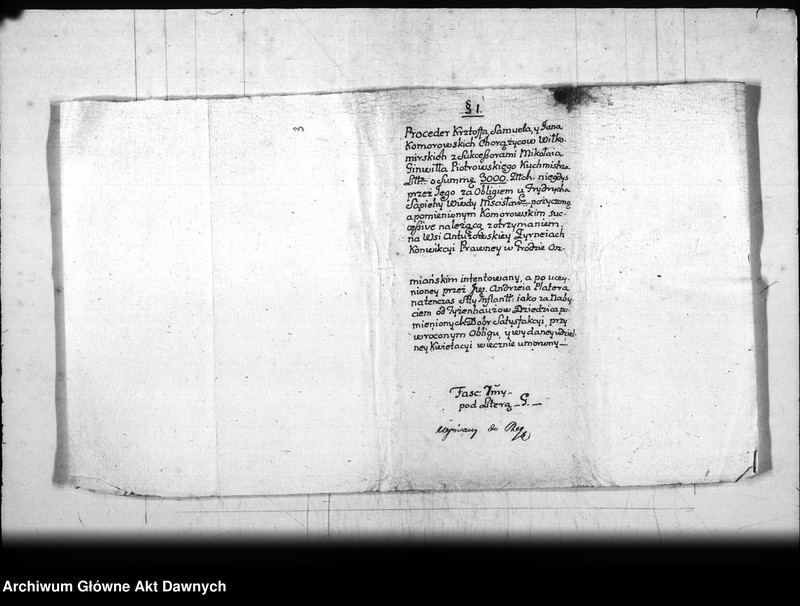 § 1.
3
Proceder Krztoffa, Samuela, y Jana
Komorowskich Chorążycow Wiłko-
mirskich z Sukceßorami Mikołaia
Ginwiłła Piotrowskiego Kuchmistrza
Litt: o Summę 3000. Złtch. niegdys
przez Jego za Obligiem u Frydrycha
Sapiehy Wwdy Mscisław: pożyczoną
a pomienionym Komorowskim suc-
ceßive należącą z otrzymaniem
na Wsi Antuzowskiey Zyrneiach
Konwikcyi Prawney w Grodzie Oz-
miańskim intentowany, a po uczy-
nioney przez Jw. Andrzeia Platera
natenczas Stty Inflantt: iako za Naby-
ciem od Tyzenhauzow Dziedzica po-
mienionych Dobr Satysfakcyi, przy
wroconym Obligu, y wydaney wdziel-
ney Kwietacyi wiecznie umorzony—
Fasc: 7my
pod Literą G.
wpisany do Reg
Archiwum Główne Akt Dawnych